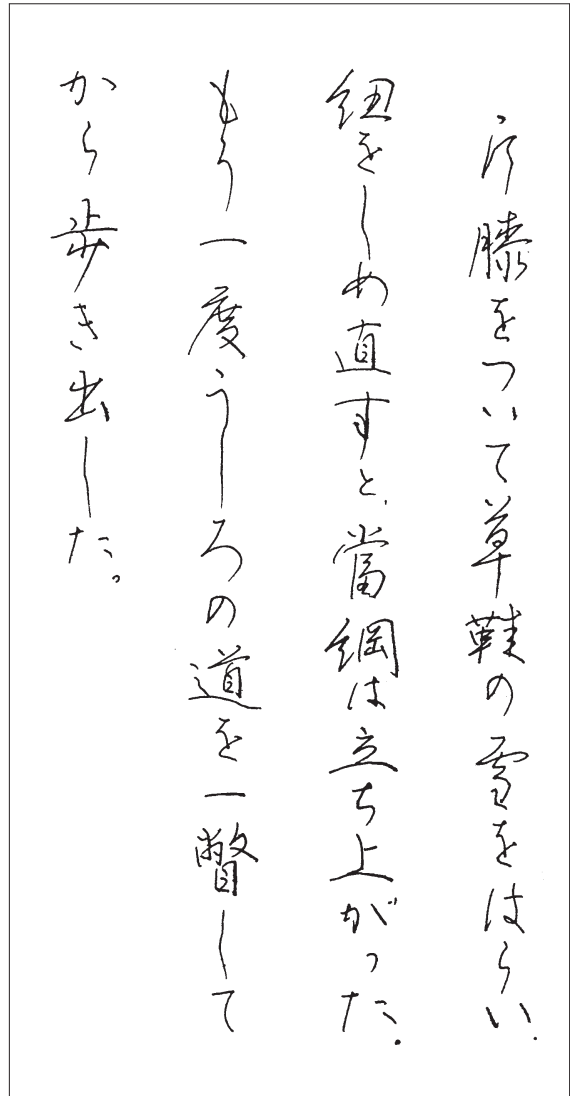 片膝をついて草鞋の雪をはらい、
紐をしめ直すと、當綱は立ち上がった。
もう一度うしろの道を一瞥して
から歩き出した。